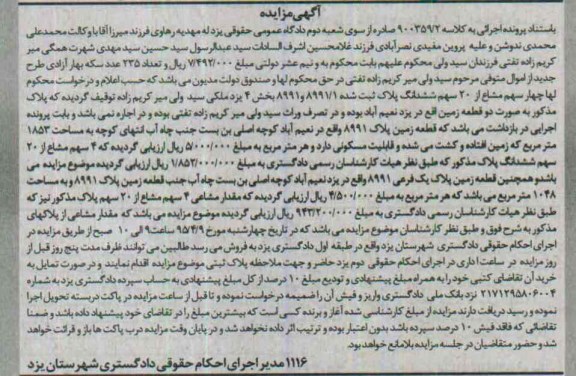 آگهی مزایده
باستناد پرونده اجرائی به کلاسه ۹۰۰۳۵۹/۲ صادره از سوی شعبه دوم دادگاه عمومی حقوقی یزد له مهدیه رهاوی فرزند میرزا آقا با وکالت محمدعلی
محمدی ندوشن و علیه پروین مفیدی نصرآبادی فرزند غلامحسین اشرف السادات سید عبدالرسول سید حسین سید مهدی شهرت همگی میر
کریم زاده تفتی فرزندان سید ولی محکوم علیهم بابت محکوم به و نیم عشر دولتی مبلغ ۷/۴۹۲/۰۰۰ ریال و تعداد ۲۳۵ عدد سکه بهار آزادی طرح
جدید از اموال متوفی مرحوم سید ولی میر کریم زاده تفتی در حق محکوم لها و صندوق دولت مدیون می باشد که حسب اعلام و درخواست محکوم
لها چهار سهم مشاع از ۲۰ سهم ششدانگ پلاک ثبت شده ۸۹۹۱/۱ و ۸۹۹۱ بخش ۴ یزد ملکی سید ولی میر کریم زاده توقیف گردیده که پلاک
مذکور به صورت دو قطعه زمین واقع در یزد نعیم آباد بوده و در تصرف وراث سید ولی میر کریم زاده تفتی بوده و در اجاره نمی باشد و بابت پرونده
اجرایی در بازداشت می باشد که قطعه زمین پلاک ۸۹۹۱ واقع در نعیم آباد کوچه اصلی بن بست جنب چاه آب انتهای کوچه به مساحت ۱۸۵۳
متر مربع که زمین افتاده و کشت می شده و قابلیت مسکونی دارد و هر متر مربع به مبلغ ۵/۰۰۰/۰۰۰ ریال ارزیابی گردیده که ۴ سهم مشاع از ۲۰
سهم ششدانگ پلاک مذکور که طبق نظر هیات کارشناسان رسمی دادگستری به مبلغ ۱/۸۵۲/۰۰۰/۰۰۰ ریال ارزیابی گردیده موضوع مزایده می
باشد و همچنین قطعه زمین پلاک یک فرعی ۸۹۹۱ واقع در یزد نعیم آباد کوچه اصلی بن بست چاه آب جنب قطعه زمین پلاک ۸۹۹۱ و به مساحت
۱۰۴۸ متر مربع می باشد که هر متر مربع به مبلغ ۴/۵۰۰/۰۰۰ ریال ارزیابی گردیده که مقدار مشاعی ۴ سهم مشاع از ۲۰ سهم پلاک مذکور نیز که
طبق نظر هیات کارشناسان رسمی دادگستری به مبلغ ۹۴۳/۲۰۰/۰۰۰ ریال ارزیابی گردیده موضوع مزایده می باشد که مقدار مشاعی از پلاکهای
مذکور به شرح فوق و طبق نظر کارشناسان موضوع مزایده می باشد که در تاریخ چهارشنبه مورخ ۹۵/۴/۹ ساعت ۹ الی ۱۰ صبح از طریق مزایده در
اجرای احکام حقوقی دادگستری شهرستان یزد واقع در طبقه اول دادگستری یزد به فروش می رسد طالبین می توانند ظرف مدت پنج روز قبل از
روز مزایده در ساعت اداری در اجرای احکام حقوقی دوم یزد حاضر و جهت ملاحظه پلاک ثبتی موضوع مزایده اقدام نمایند و در صورت تمایل به
خرید آن تقاضای کتبی خود را به همراه مبلغ پیشنهادی و تودیع مبلغ ۱۰ درصد از کل مبلغ پیشنهادی به حساب سپرده دادگستری یزد به شماره
۲۱۷۱۲۹۵۸۰۶۰۰۴ نزد بانک ملی دادگستری واریز و فیش آن را ضمیمه درخواست نموده و تا قبل از ساعت مزایده در پاکت دربسته تحویل اجرا
نموده و رسید دریافت دارند مزایده از مبلغ کارشناسی شده آغاز و برنده کسی است که بیشترین مبلغ را در تقاضای خود پیشنهاد داده باشد و ضمنا
تقاضائی که فاقد فیش ۱۰ درصد سپرده باشد بدون اعتبار بوده و ترتیب اثر داده نخواهد شد و در پایان وقت مزایده درب پاکت ها باز و قرائت خواهد
شد و حضور متقاضیان در جلسه مزایده بلامانع خواهد بود.
۱۱۱۶ مدیر اجرای احکام حقوقی دادگستری شهرستان یزد